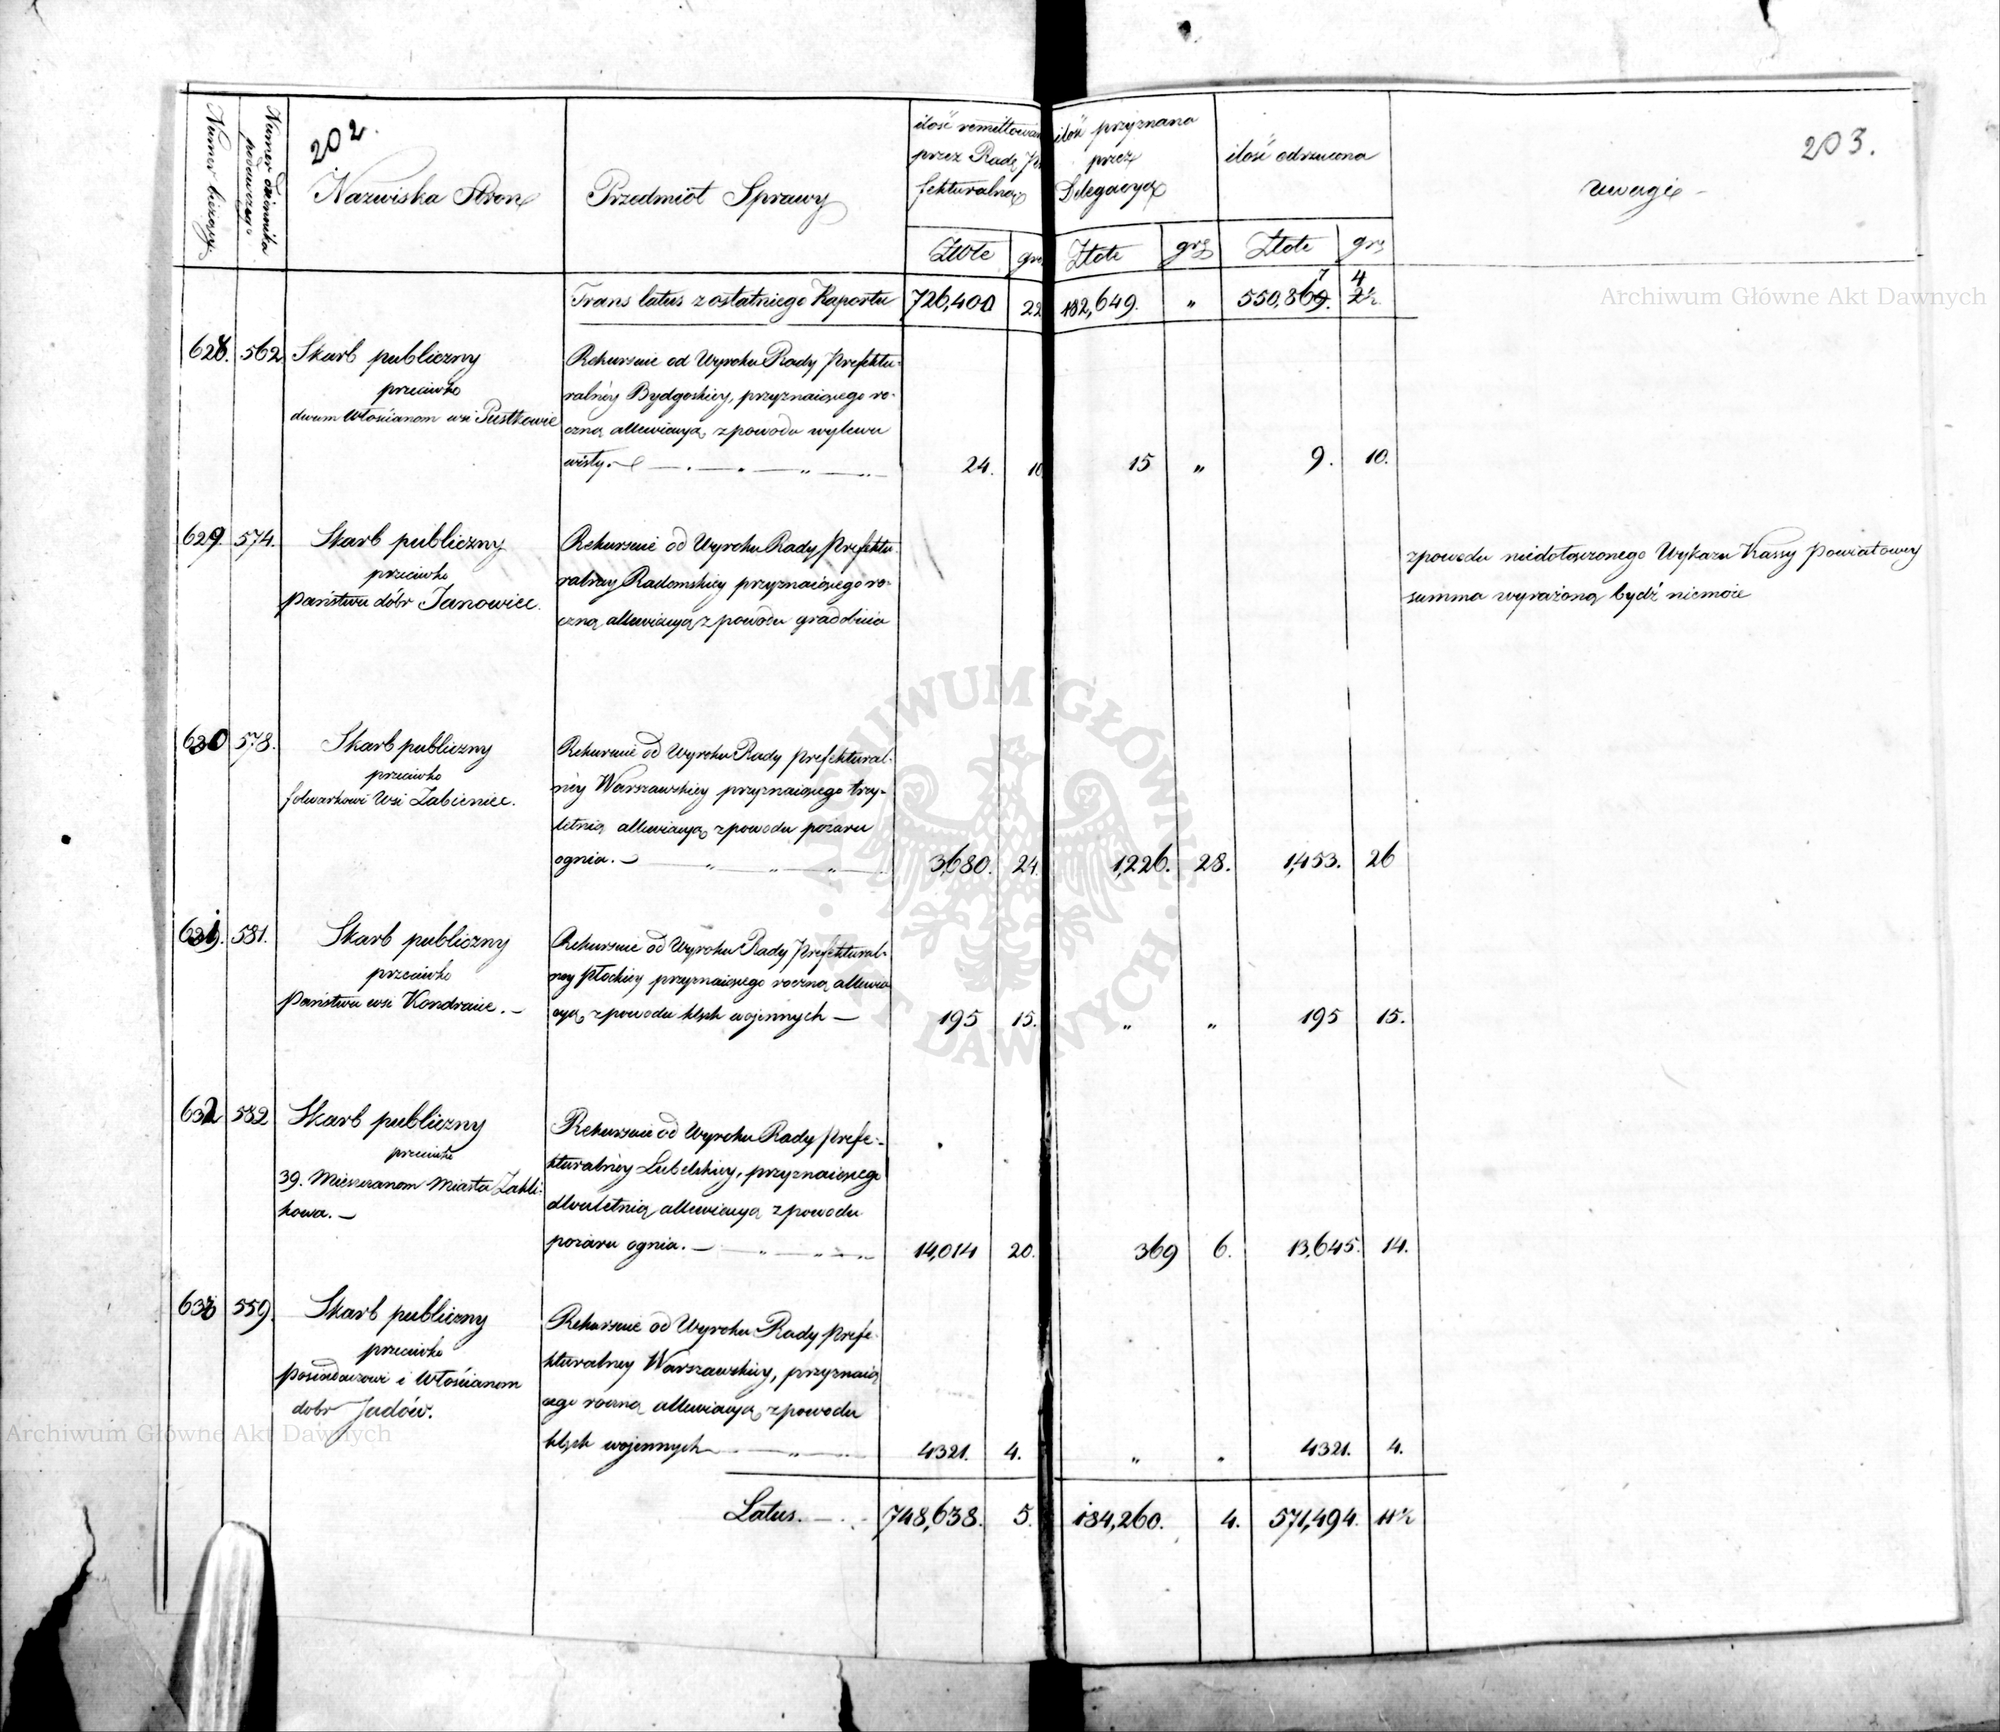 202.
203.
Numer bieżący
Numer dziennika
podawczego
Nazwiska Stron
Przedmiot Sprawy
ilość remittowana
przez Radę Pre
fekturalną
ilość przyznana
przez
Delegacyą
ilość odrzucona
uwagi
Złote gr Złote grz Złote grz
Trans latus z ostatniego Raportu 726,400 22 182,649. " 550,869. 7 4
628. 562 Skarb publiczny
przeciwko
dwum Włościanom wsi Pustkowie
Rekursuie od Wyroku Rady Prefektu-
ralney Bydgoskiey, przyznaiącego ro-
czną allewiacyą z powodu wylewu
wisły. — 24. 10 15 " 9. 10.
629. 574. Skarb publiczny
przeciwko
Państwu dóbr Janowiec.
Rekursuie od Wyroku Rady Prefektu-
ralney Radomskiey przyznaiącego ro-
czną allewiacyą z powodu gradobicia
z powodu niedołączonego Wykazu Kassy Powiatowey
summa wyrażoną bydź niemoże
630 578. Skarb publiczny
przeciwko
folwarkowi Wsi Żabieniec.
Rekursuie od Wyroku Rady Prefektural-
ney Warszawskiey przyznaiącego trzy-
letnią allewiacyą z powodu pożaru
ognia. — 3,680. 24. 1,226. 28. 1,453. 26
631. 581. Skarb publiczny
przeciwko
Państwu wsi Kondraiec. —
Rekursuie od Wyroku Rady Prefektural-
ney Płockiey przyznaiącego roczną allewia
cyą z powodu klęsk wojennych — 195 15. " " 195 15.
632 582 Skarb publiczny
przeciwko
39. Mieszczanom Miasta Zakli-
kowa. —
Rekursuie od Wyroku Rady Prefe-
kturalney Lubelskiey, przyznaiącego
dwuletnią allewiacyą z powodu
pożaru ognia. — 14,014 20. 369 6. 13,645. 14.
633 559. Skarb publiczny
przeciwko
Posiadaczowi i Włościanom
dobr Jadów.
Rekursuie od Wyroku Rady Prefe-
kturalney Warszawskiey, przyznaią
cego roczną allewiacyą z powodu
klęsk wojennych 4321. 4. " " 4321. 4.
Latus. — 748,638. 5. 184,260. 4. 571,494. 11½
Archiwum Główne Akt Dawnych
Archiwum Główne Akt Dawnych
ARCHIWUM GŁÓWNE AKT DAWNYCH